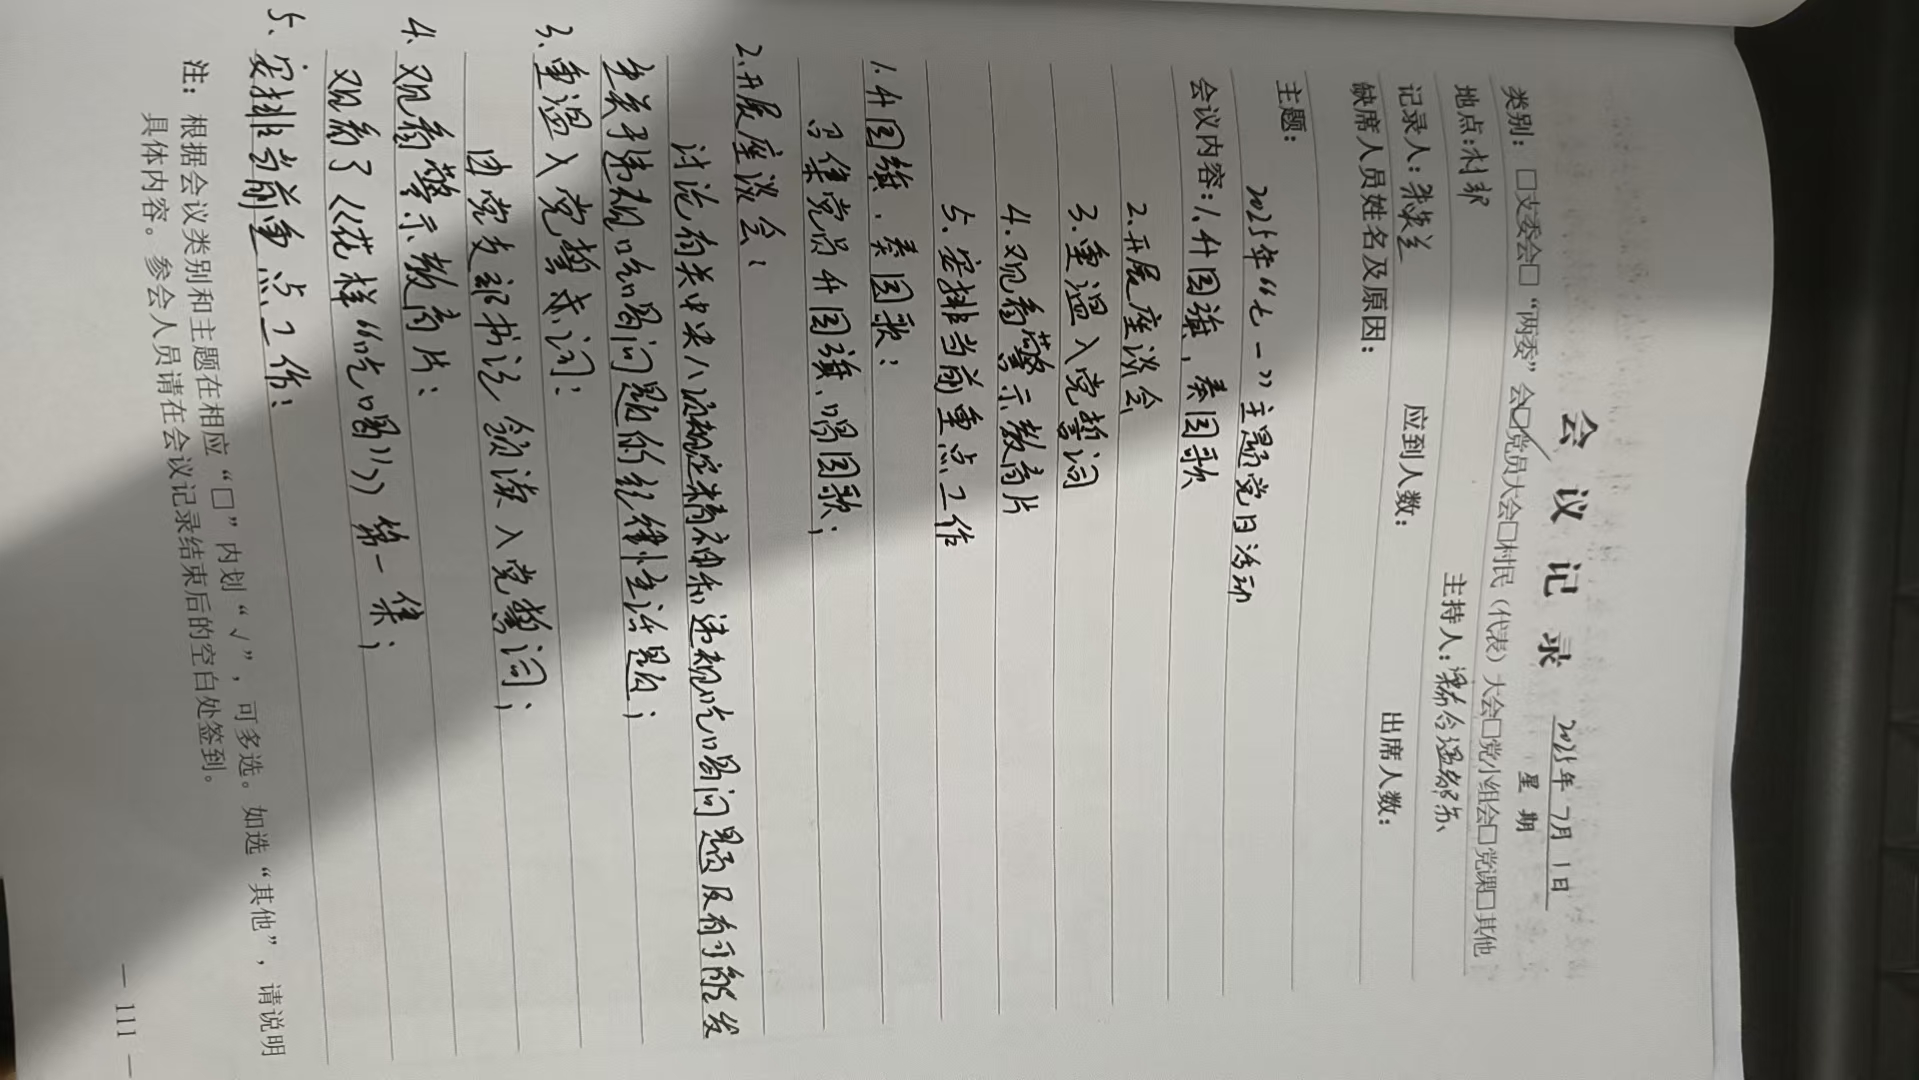 会议记录
2025年7月1日
星期
类别：□支委会□“两委”会☑党员大会□村民（代表）大会□党小组会□党课□其他
地点：村部 主持人：
记录人： 应到人数： 出席人数：
缺席人员姓名及原因：
主题：
2025年“七一”主题党日活动
会议内容：1.升国旗，奏国歌
2.开展座谈会
3.重温入党誓词
4.观看警示教育片
5.安排当前重点工作
1.升国旗、奏国歌：
召集党员升国旗、唱国歌；
2.开展座谈会：
讨论有关中央八项规定精神和违规吃喝问题及有可能发
生关于违规吃喝问题的纪律性话题；
3.重温入党誓词：
由党支部书记领读入党誓词；
4.观看警示教育片：
观看了《花样“吃喝”》第一集；
5.安排当前重点工作：
注：根据会议类别和主题在相应“□”内划“√”，可多选。如选“其他”，请说明
具体内容。参会人员请在会议记录结束后的空白处签到。
— 111 —